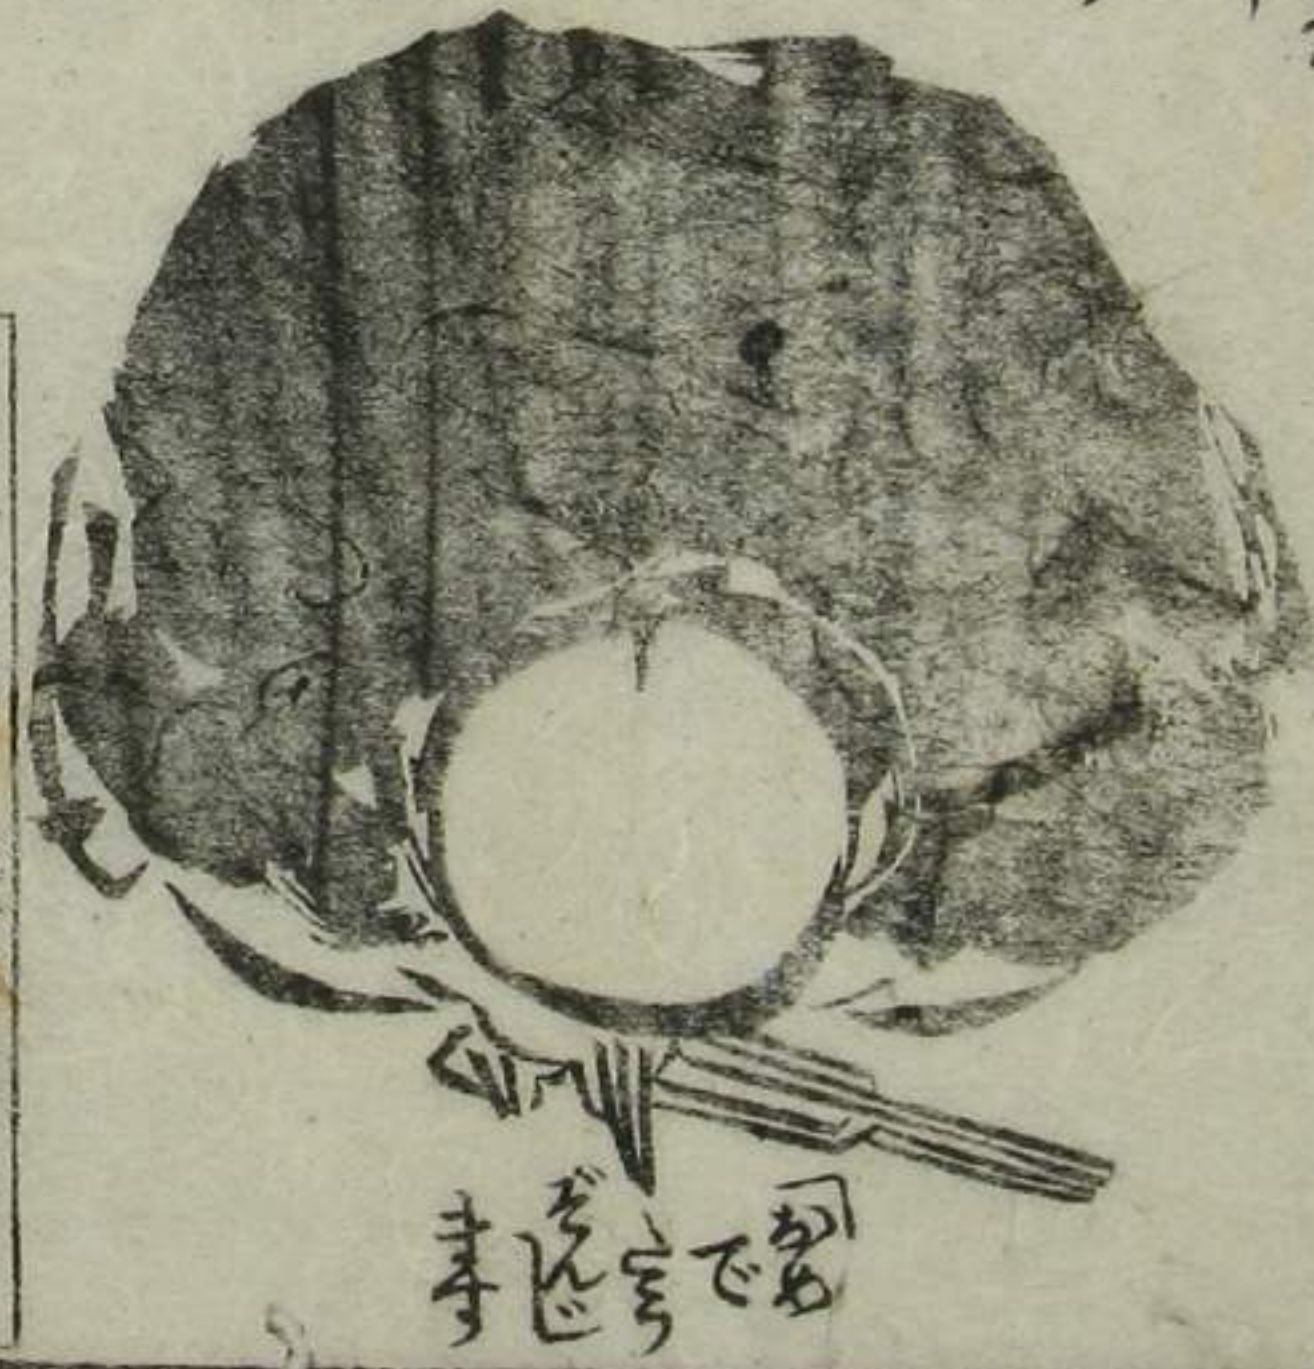 おめ
で
ぞんじ
ます